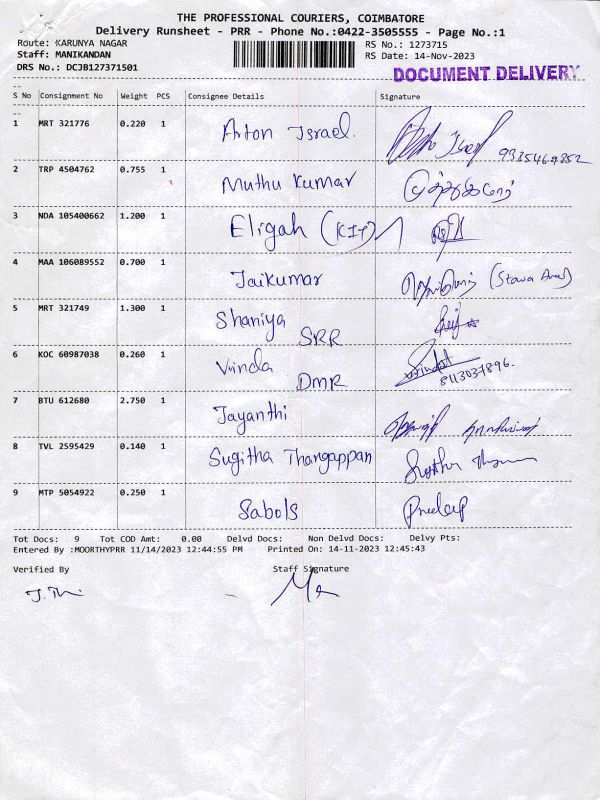 THE PROFESSIONAL COURIERS, COIMBATORE
Delivery Runsheet - PRR - Phone No.:0422-3505555 - Page No.:1
Route: KARUNYA NAGAR RS No.: 1273715
Staff: MANIKANDAN RS Date: 14-Nov-2023
DRS No.: DCJB127371501 DOCUMENT DELIVERY
S No Consignment No Weight PCS Consignee Details Signature
1 MRT 321776 0.220 1 Arton Israel. 9385469852
2 TRP 4504762 0.755 1 Muthu Kumar
3 NDA 105400662 1.200 1 Eligah (KIT)
4 MAA 106089552 0.700 1 Jaikumar
5 MRT 321749 1.300 1 Shaniya SRR
6 KOC 60987038 0.260 1 Vrinda DMR 8113037896.
7 BTU 612680 2.750 1 Jayanthi
8 TVL 2595429 0.140 1 Sugitha Thangappan
9 MTP 5054922 0.250 1 Sabols Pradeep
Tot Docs: 9 Tot COD Amt: 0.00 Delvd Docs: Non Delvd Docs: Delvy Pts:
Entered By :MOORTHYPRR 11/14/2023 12:44:55 PM Printed On: 14-11-2023 12:45:43
Verified By Staff Signature